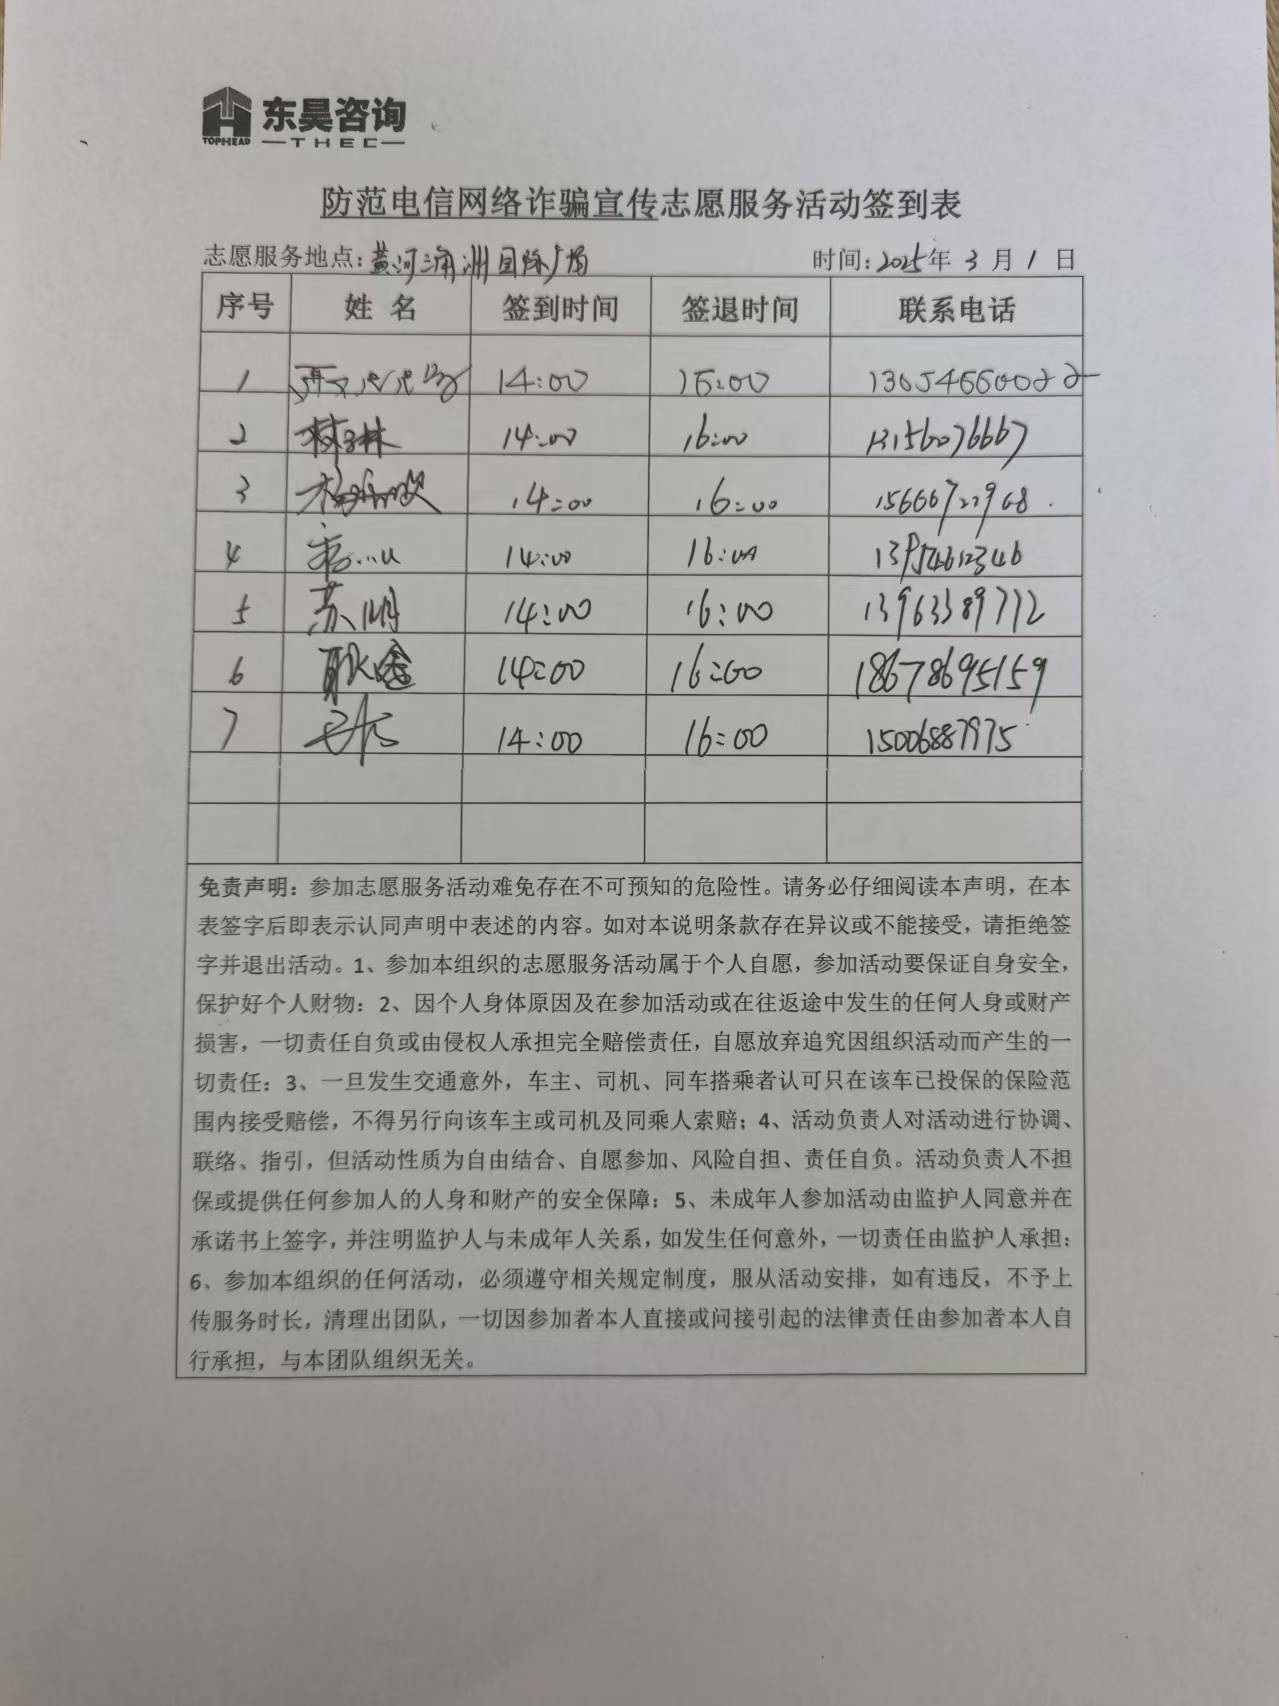 东昊咨询
TOPHEAD THEC
防范电信网络诈骗宣传志愿服务活动签到表
志愿服务地点:黄河 洲国际广场 时间:2025年 3 月 1 日
序号 姓 名 签到时间 签退时间 联系电话
1 14:00 16:00 13054660022
2 林 14:00 16:00 13156076667
3 杨 欣 14:00 16:00
4 14:00 16:00
5 苏 明 14:00 16:00 13963389772
6 耿 14:00 16:00 18678695159
7 14:00 16:00 15006887975
免责声明:参加志愿服务活动难免存在不可预知的危险性。请务必仔细阅读本声明,在本
表签字后即表示认同声明中表述的内容。如对本说明条款存在异议或不能接受,请拒绝签
字并退出活动。1、参加本组织的志愿服务活动属于个人自愿,参加活动要保证自身安全,
保护好个人财物;2、因个人身体原因及在参加活动或在往返途中发生的任何人身或财产
损害,一切责任自负或由侵权人承担完全赔偿责任,自愿放弃追究因组织活动而产生的一
切责任;3、一旦发生交通意外,车主、司机、同车搭乘者认可只在该车已投保的保险范
围内接受赔偿,不得另行向该车主或司机及同乘人索赔;4、活动负责人对活动进行协调、
联络、指引,但活动性质为自由结合、自愿参加、风险自担、责任自负。活动负责人不担
保或提供任何参加人的人身和财产的安全保障;5、未成年人参加活动由监护人同意并在
承诺书上签字,并注明监护人与未成年人关系,如发生任何意外,一切责任由监护人承担;
6、参加本组织的任何活动,必须遵守相关规定制度,服从活动安排,如有违反,不予上
传服务时长,清理出团队,一切因参加者本人直接或间接引起的法律责任由参加者本人自
行承担,与本团队组织无关。